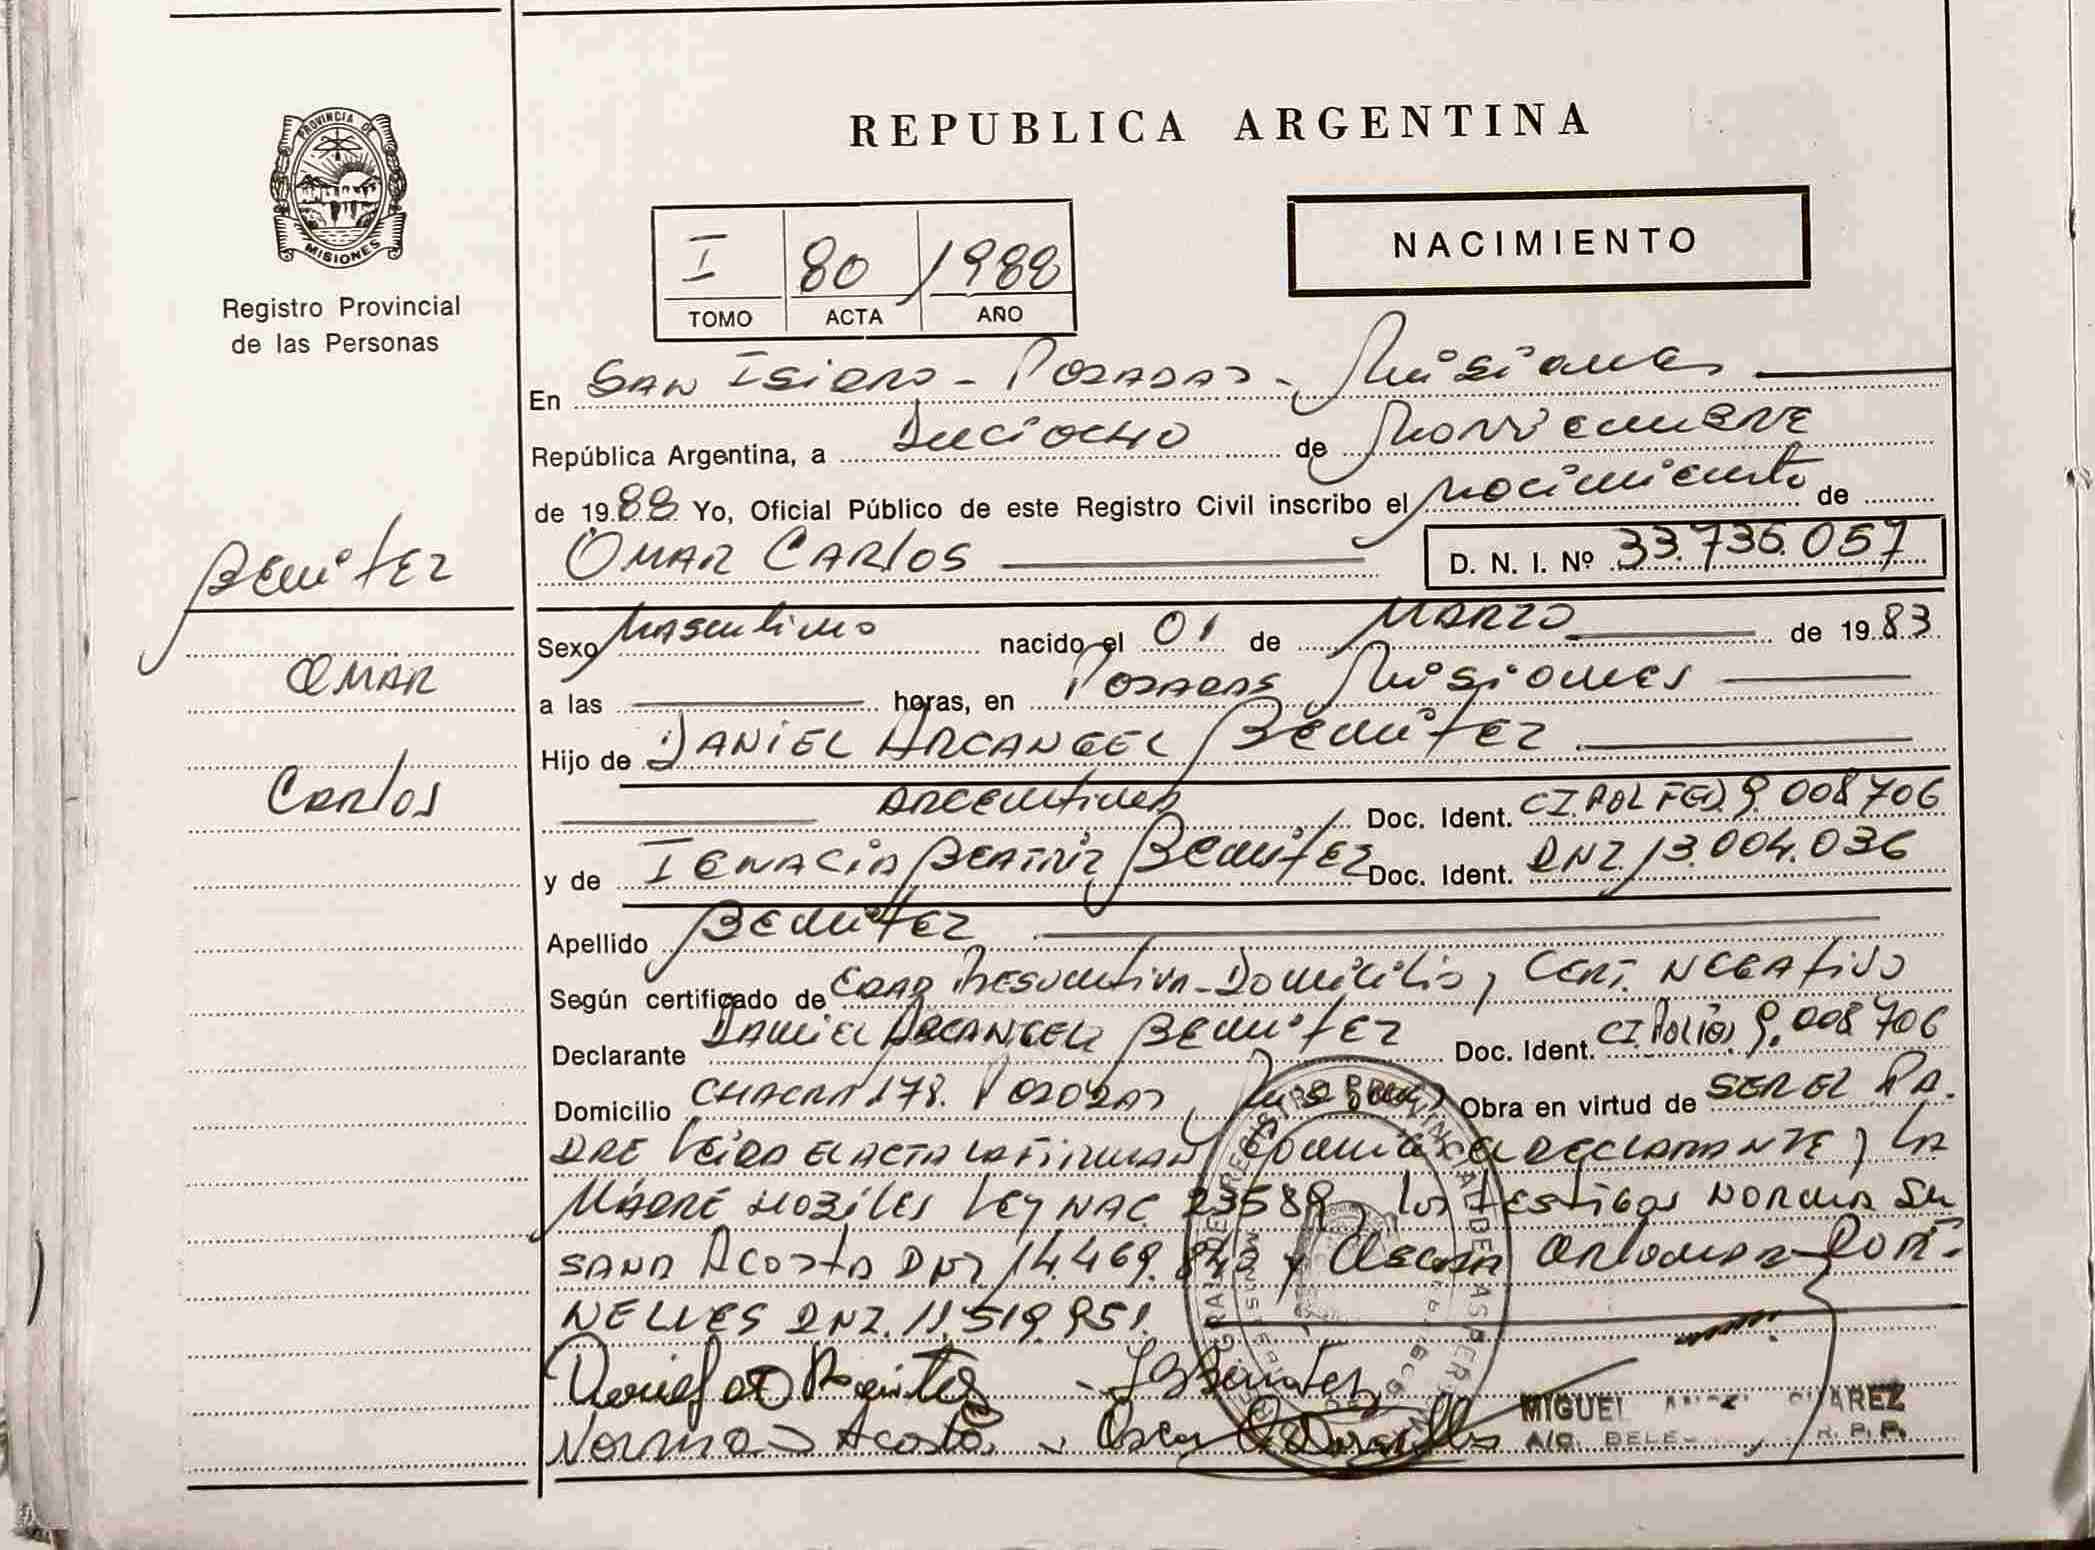 PROVINCIA DE
MISIONES
Registro Provincial
de las Personas
Benitez
Omar
Carlos
REPUBLICA ARGENTINA
I 80 1988
TOMO ACTA AÑO
NACIMIENTO
En San Isidro - Posadas - Misiones
República Argentina, a Dieciocho de Noviembre
de 1988 Yo, Oficial Público de este Registro Civil inscribo el nacimiento de
Omar Carlos D. N. I. Nº 33.736.057
Sexo Masculino nacido el 01 de Marzo de 1983
a las horas, en Posadas Misiones
Hijo de Daniel Arcangel Benitez
Argentina Doc. Ident. CI. Pol Fed. 9.008706
y de Ignacia Beatriz Benitez Doc. Ident. DNI. 13.004.036
Apellido Benitez
Según certificado de Edad Presuntiva - Domicilio y Cert. Negativo
Declarante Daniel Arcangel Benitez Doc. Ident. CI. Pol Fed 9.008706
Domicilio Chacra 178. Posadas, Misiones Obra en virtud de ser el pa
dre leida el acta la firman conmigo el declarante, la
Madre Ley Nac 23589, los testigos Norma Su
sana Acosta DNI. 14.469.842 y Oscar
DNI. 11.519.951.
Daniel A Benitez - I B Benitez
Norma S Acosta - Oscar
MIGUEL